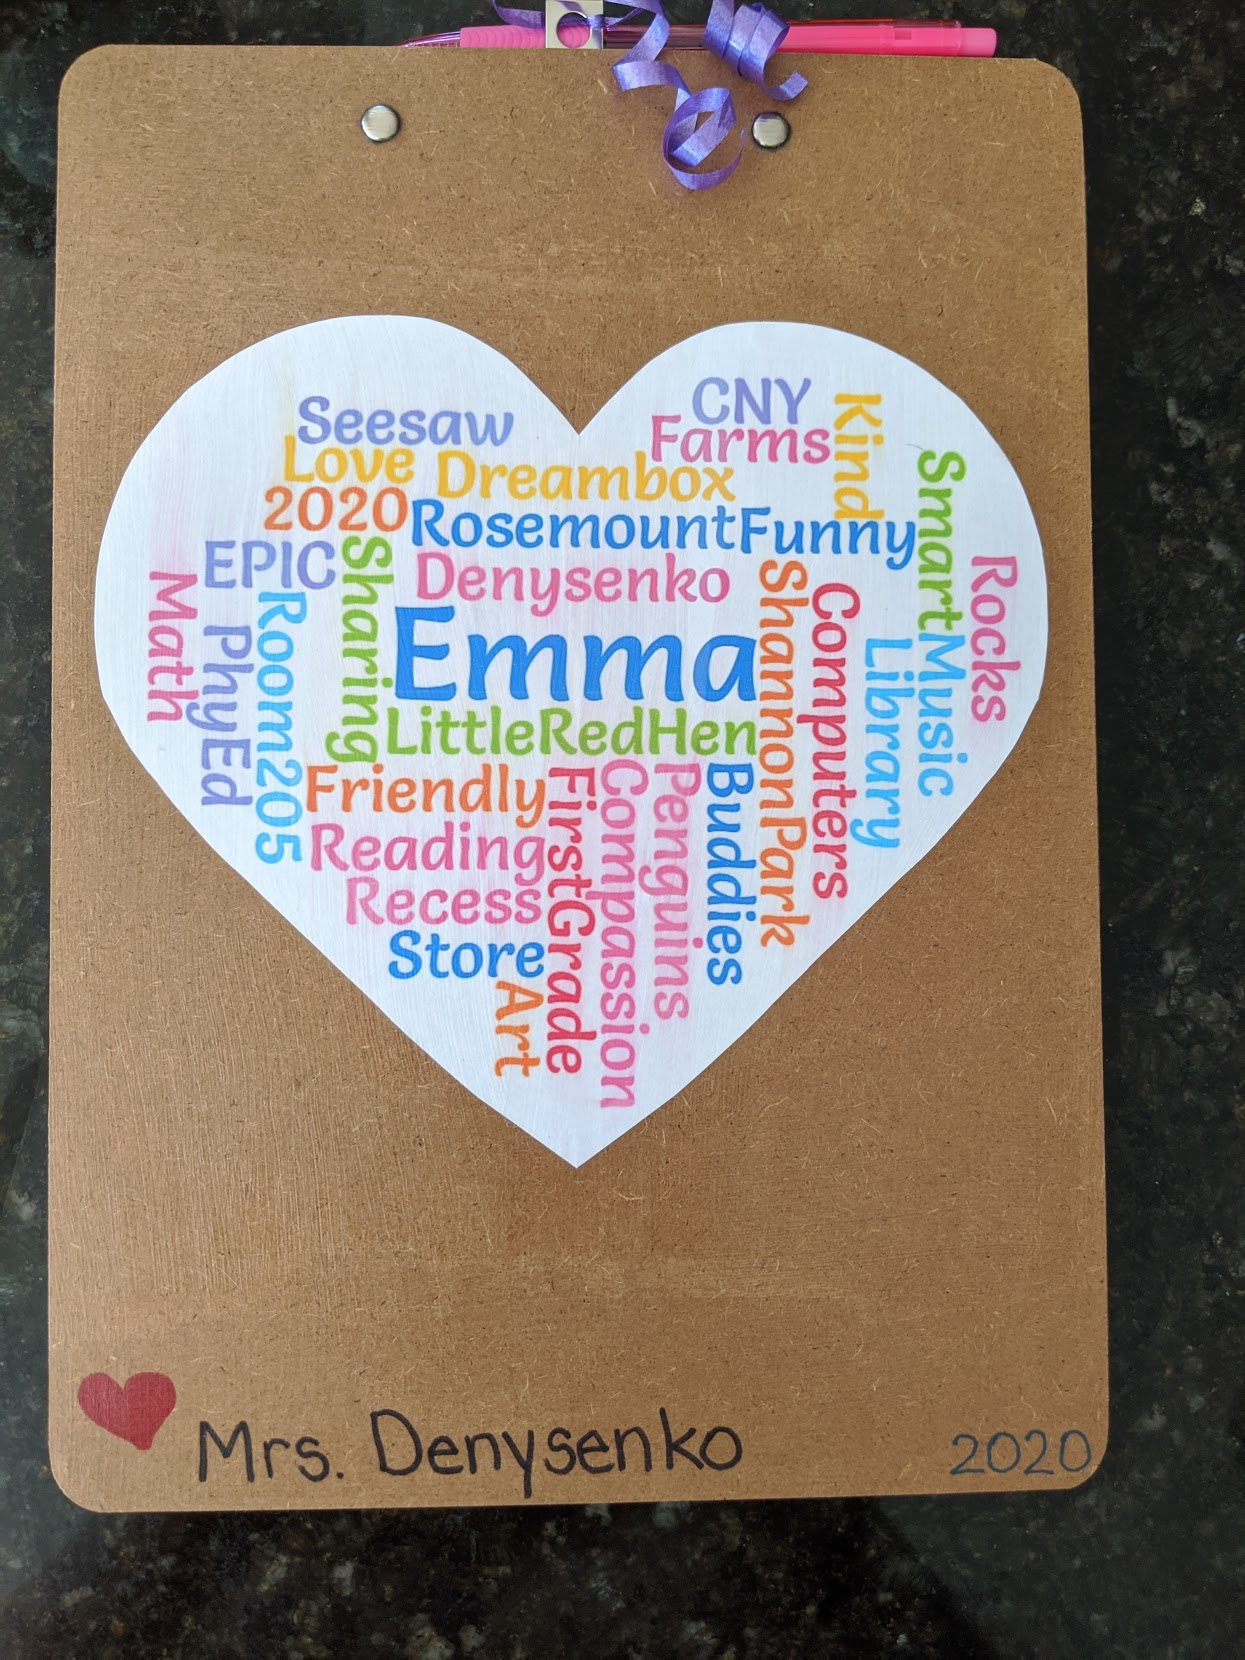 Seesaw
CNY
Farms
Kind
Love
Dreambox
2020
Rosemount
Funny
Smart
EPIC
Sharing
Denysenko
ShannonPark
Computers
Rocks
Math
PhyEd
Room205
Emma
Library
Music
LittleRedHen
Friendly
FirstGrade
Compassion
Penguins
Buddies
Reading
Recess
Store
Art
Mrs. Denysenko
2020